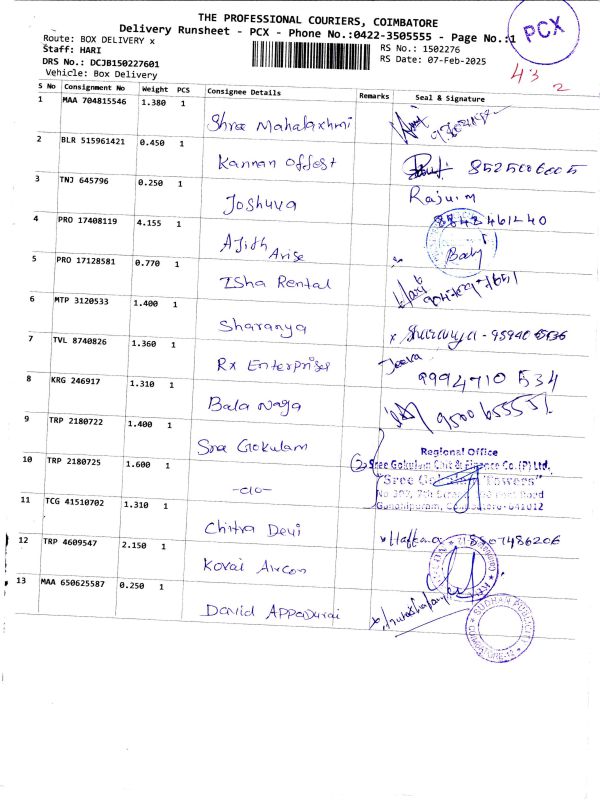 THE PROFESSIONAL COURIERS, COIMBATORE
Delivery Runsheet - PCX - Phone No.:0422-3505555 - Page No.:1
PCX
Route: BOX DELIVERY x
RS No.: 1502276
Staff: HARI
RS Date: 07-Feb-2025
DRS No.: DCJB150227601
Vehicle: Box Delivery
43 2
S No Consignment No Weight PCS Consignee Details Remarks Seal & Signature
1 MAA 704815546 1.380 1
Shree Mahalaxhmi
2 BLR 515961421 0.450 1
Kannan Offest 8525006005
3 TNJ 645796 0.250 1
Joshuva Rajuim
8842461240
4 PRO 17408119 4.155 1
Ajith Arise Baby
5 PRO 17128581 0.770 1
Isha Rental Hari
6 MTP 3120533 1.400 1
Sharanya x Sharanya - 95940
7 TVL 8740826 1.360 1
Rx Enterprises Jeeva
9994710 534
8 KRG 246917 1.310 1
Bala Naga
9 TRP 2180722 1.400 1
Sree Gokulam
Regional Office
10 TRP 2180725 1.600 1
2 Sree Gokulam Chit & Finance Co.(P) Ltd.
"Sree Gokulam Towers"
-do-
11 TCG 41510702 1.310 1
641012
Chitra Devi 8507486206
12 TRP 4609547 2.150 1
Kovai Aircon
13 MAA 650625587 0.250 1
David Appadurai
SUDHAN PUBLICITY